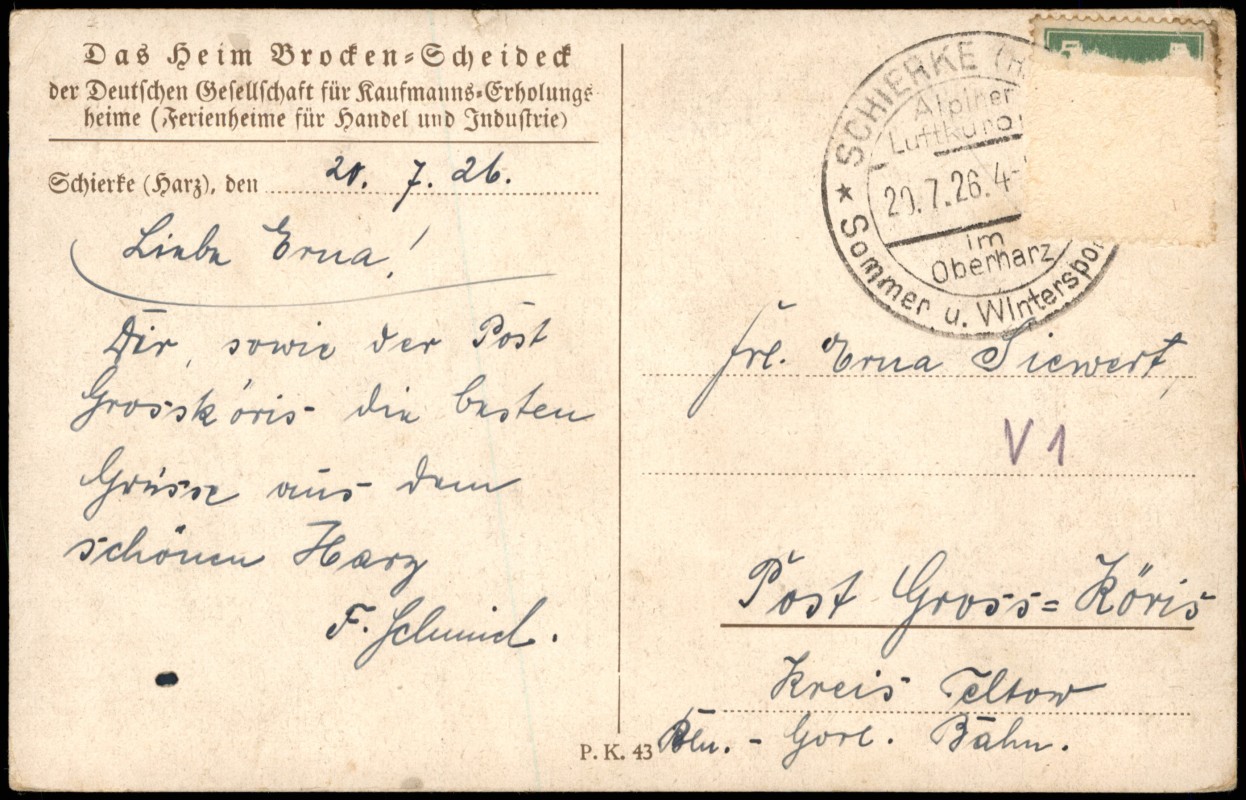 Das Heim Brocken-Scheideck
der Deutschen Gesellschaft für Kaufmanns-Erholungs
heime (Ferienheime für Handel und Industrie)
Schierke (Harz), den 20. 7. 26.
Liebe Erna!
Dir, sowie der Post
Grossköris die besten
Grüsse aus dem
schönen Harz
F. Schmid.
P. K. 43
SCHIERKE (H
Alpiner
Luftkuro
20.7.26.4-
im
Oberharz
★ Sommer u. Winterspor
5
Frl. Erna Siewert,
V 1
Post Gross=Köris
Kreis Teltow
Bln. - Görl. Bahn.